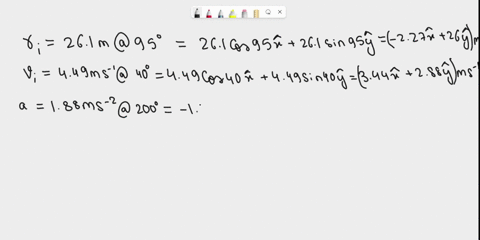 r_i = 26.1 m @ 95° = 26.1 cos 95 x̂ + 26.1 sin 95 ŷ = (-2.27 x̂ + 26 ŷ) m
v_i = 4.49 ms⁻¹ @ 40° = 4.49 cos 40 x̂ + 4.49 sin 40 ŷ = (3.44 x̂ + 2.88 ŷ) ms⁻
a = 1.88 ms⁻² @ 200° = -1.